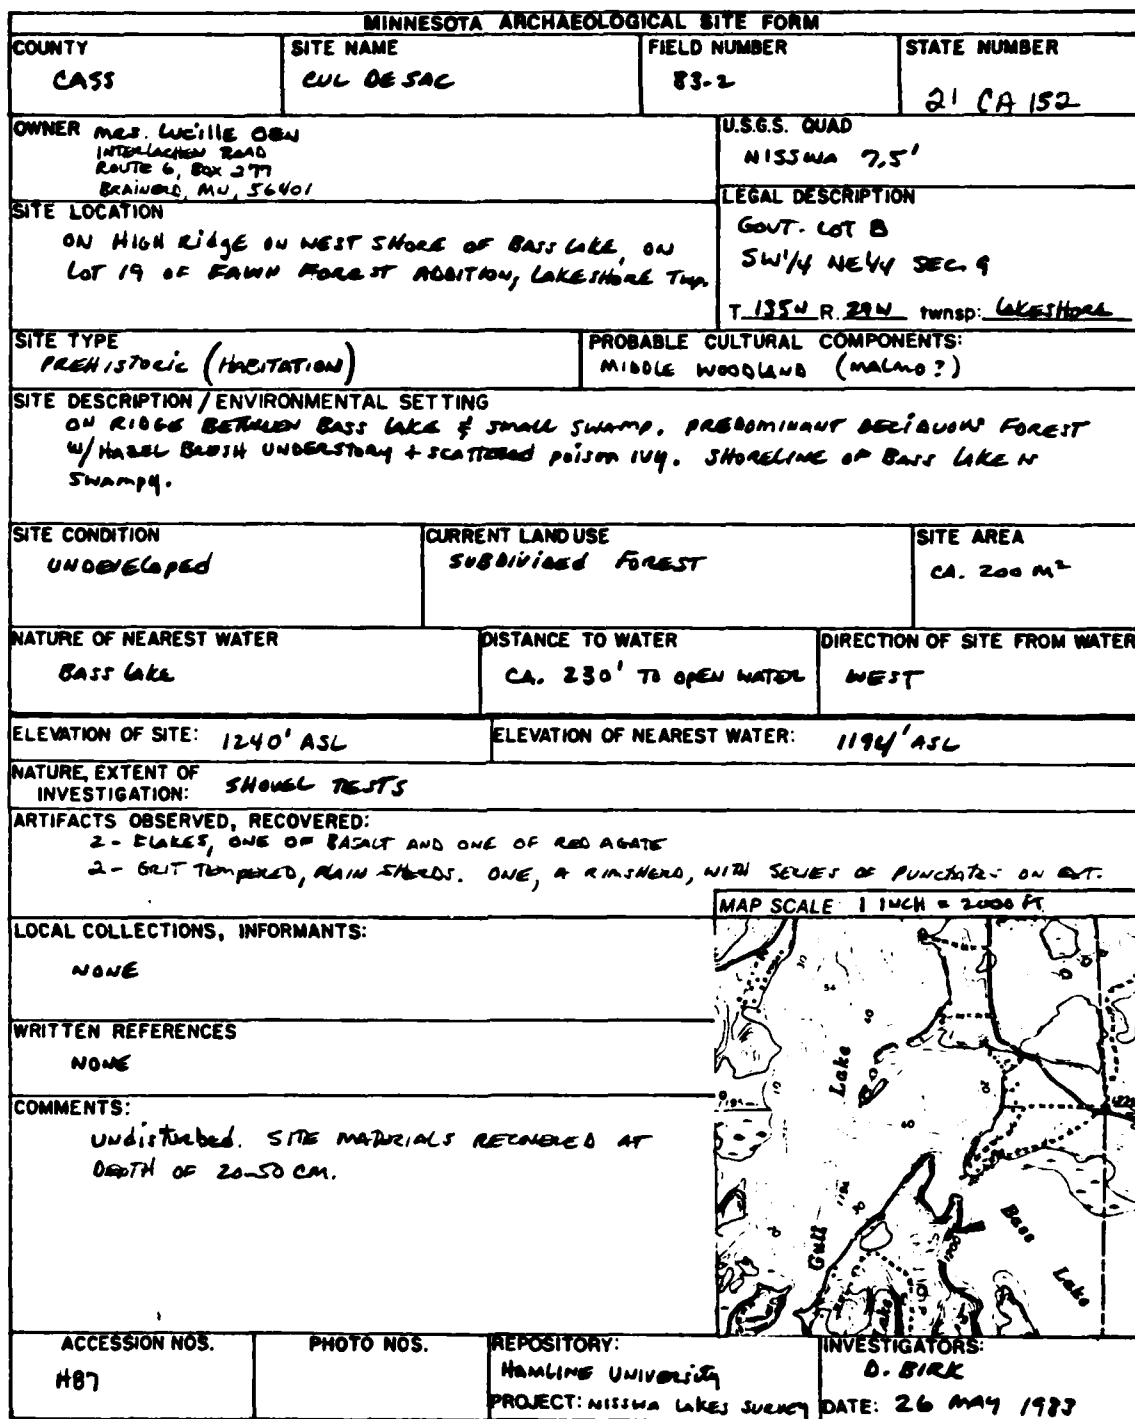 MINNESOTA ARCHAEOLOGICAL SITE FORM
COUNTY
CASS
SITE NAME
CUL DE SAC
FIELD NUMBER
83-2
STATE NUMBER
21 CA 152
OWNER MRS. LUCILLE
INTERLACHEN ROAD
ROUTE 6, BOX 277
BRAINERD, MN, 56401
U.S.G.S. QUAD
NISSWA 7.5'
SITE LOCATION
ON HIGH RIDGE ON WEST SHORE OF BASS LAKE, ON
LOT 19 OF FAWN FOREST ADDITION, LAKESHORE TWP.
LEGAL DESCRIPTION
GOVT. LOT B
SW 1/4 NE 1/4 SEC. 9
T. 135N R. 29W twnsp: LAKESHORE
SITE TYPE
PREHISTORIC (HABITATION)
PROBABLE CULTURAL COMPONENTS:
MIDDLE WOODLAND (MALMO?)
SITE DESCRIPTION / ENVIRONMENTAL SETTING
ON RIDGE BETWEEN BASS LAKE & SMALL SWAMP. PREDOMINANT DECIDUOUS FOREST
W/ HAZEL BRUSH UNDERSTORY + SCATTERED POISON IVY. SHORELINE OF BASS LAKE IS
SWAMPY.
SITE CONDITION
UNDEVELOPED
CURRENT LAND USE
SUBDIVIDED FOREST
SITE AREA
CA. 200 M²
NATURE OF NEAREST WATER
BASS LAKE
DISTANCE TO WATER
CA. 230' TO OPEN WATER
DIRECTION OF SITE FROM WATER
WEST
ELEVATION OF SITE: 1240' ASL
ELEVATION OF NEAREST WATER: 1194' ASL
NATURE, EXTENT OF
INVESTIGATION: SHOVEL TESTS
ARTIFACTS OBSERVED, RECOVERED:
2 - FLAKES, ONE OF BASALT AND ONE OF RED AGATE
2 - GRIT TEMPERED, PLAIN SHERDS. ONE, A RIMSHERD, WITH SERIES OF PUNCTATES ON EXT.
MAP SCALE 1 INCH = 2000 FT
LOCAL COLLECTIONS, INFORMANTS:
NONE
WRITTEN REFERENCES
NONE
COMMENTS:
UNDISTURBED. SITE MATERIALS RECOVERED AT
DEPTH OF 20-50 CM.
30
54
40
Lake
10
20
60
1194
20
Gull
Bass
Lake
1200
Lake
ACCESSION NOS.
H87
PHOTO NOS.
REPOSITORY:
HAMLINE UNIVERSITY
PROJECT: NISSWA LAKES SURVEY
INVESTIGATORS:
D. BIRK
DATE: 26 MAY 1983